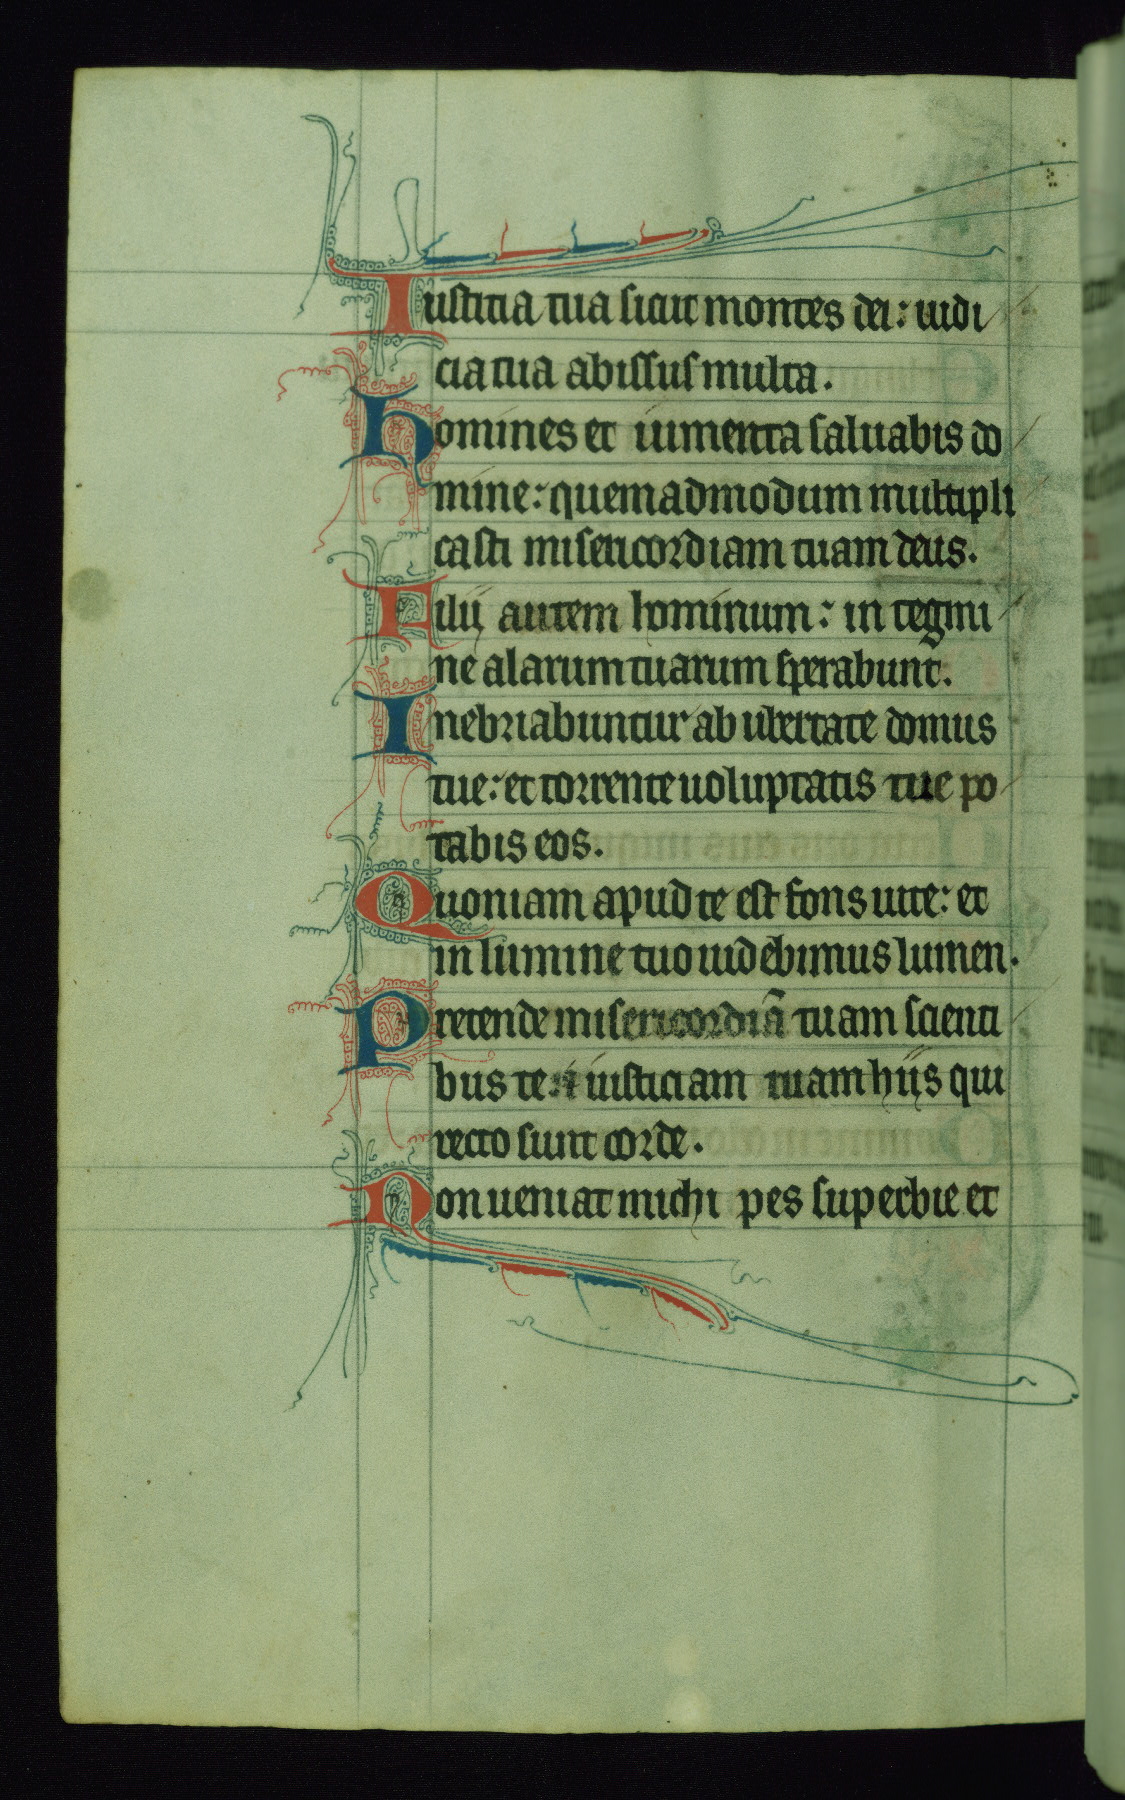 Iusticia tua sicut montes dei: iudi
cia tua abissus multa.
Homines et iumenta saluabis do
mine: quemadmodum multipli
casti misericordiam tuam deus.
Filij autem hominum: in tegmi
ne alarum tuarum sperabunt.
Inebriabuntur ab ubertate domus
tue: et torrente uoluptatis tue po
tabis eos.
Quoniam apud te est fons uite: et
in lumine tuo uidebimus lumen.
Pretende misericordiã tuam scienti
bus te: iusticiam tuam hijs qui
recto sunt corde.
Non ueniat michi pes superbie et